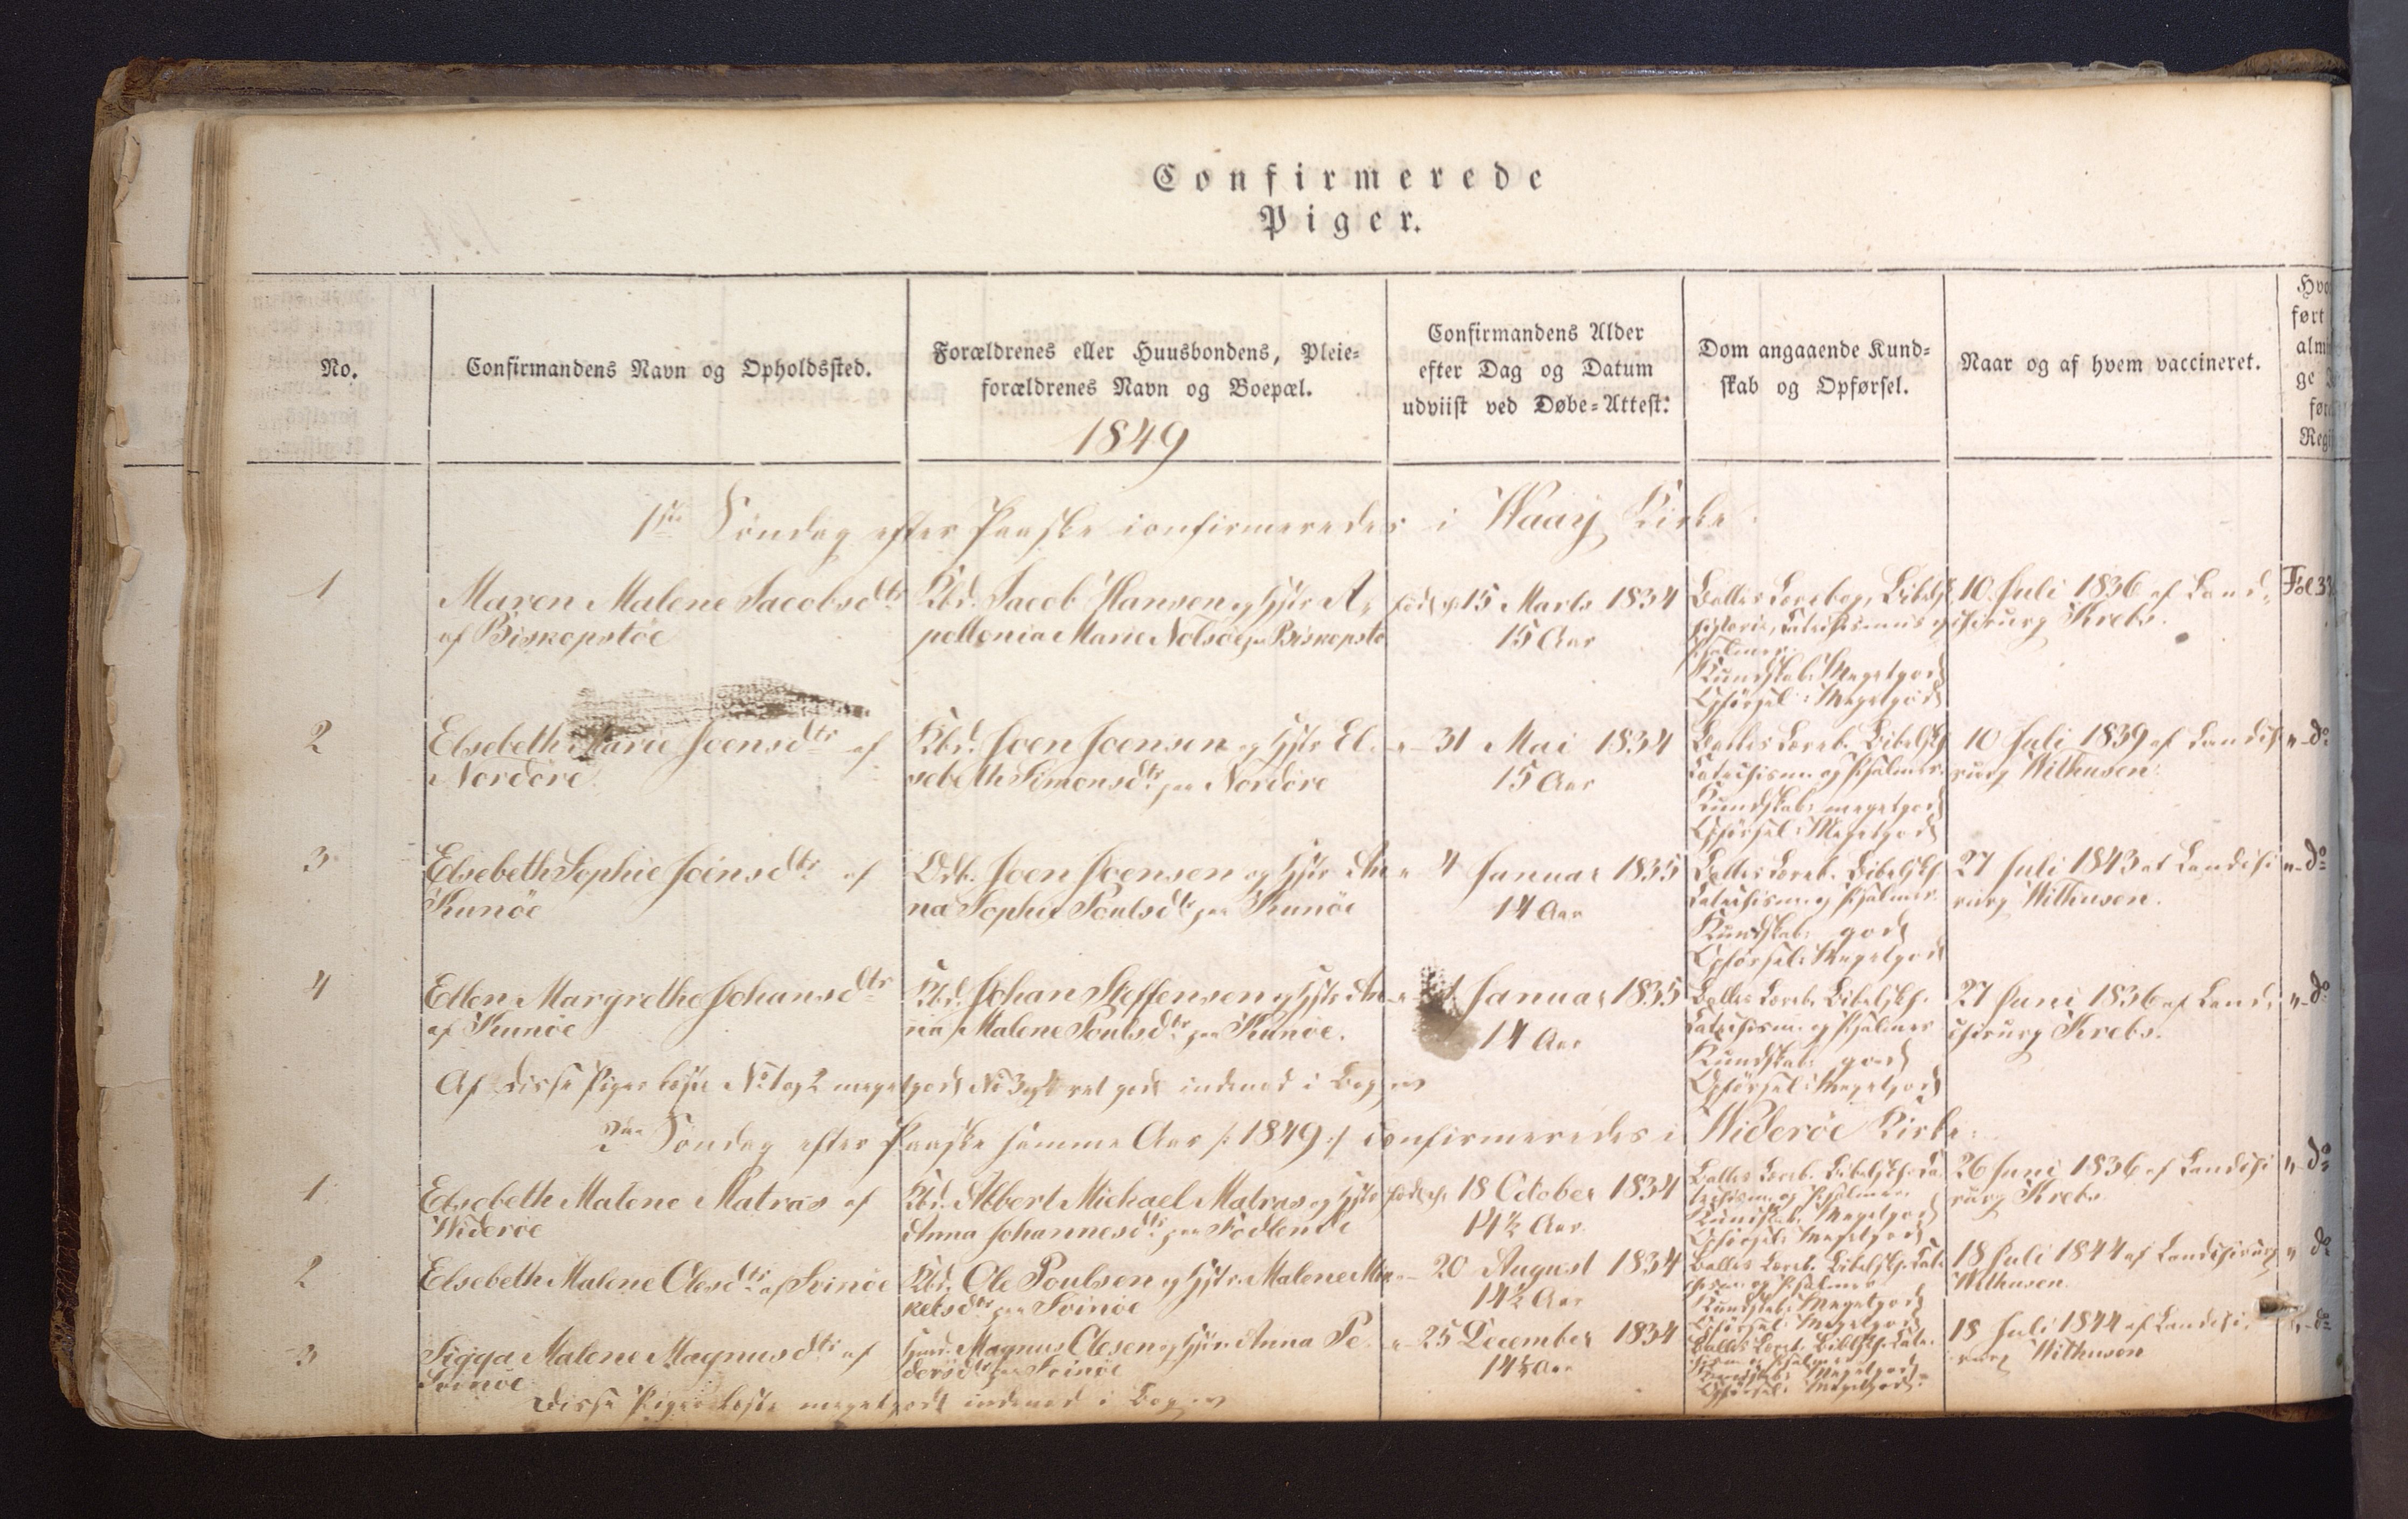 Confirmerede
Piger.
No.
Confirmandens Navn og Opholdssted.
Forældrenes eller Huusbondens, Pleie-
forældrenes Navn og Boepæl.
1849
Confirmandens Alder
efter Dag og Datum
udviist ved Døbe-Attest.
Dom angaaende Kund-
skab og Opførsel.
Naar og af hvem vaccineret.
Hvo
ført
alm
ge
før
Regi
1ste Søndag efter Paaske confirmeredes i Waay Kirke:
1
Maren Malene Jacobsdtr
af Biskopstøe
Kbd. Jacob Hansen og Hstr A-
pellonia Marie Nolsøe paa Biskopstø
født d. 15 Marts 1834
15 Aar
Balles Lærebog, Bibelsk
Historie, Catechismus og
Psalmer.
Kundskab: Megetgod
Opførsel: Megetgod
10 Juli 1836 af Land-
chirurg Krebs.
Fol 33
2
Elsebeth Marie Joensdtr af
Nordøre
Kbd. Joen Joensen og Hstr El-
sebeth Simonsdtr paa Nordøre
"- 31 Mai 1834
15 Aar
Balles Læreb. Bibelsk H
Catechism. og Psalmer.
Kundskab: megetgod
Opførsel: Megetgod
10 Juli 1839 af Landchi
rurg Withusen.
"- do
3
Elsebeth Sophie Joensdtr af
Kunøe
Odb. Joen Joensen og Hstr An
na Sophie Poulsdtr paa Kunøe
" 4 Januar 1835
14 Aar
Balles Læreb. Bibelsk H.
Catechism. og Psalmer.
Kundskab: god
Opførsel: Megetgod
27 Juli 1843 af Landchi
rurg Withusen.
"- do
4
Ellen Margrethe Johansdtr
af Kunøe
Kbd. Johan Steffensen og Hstr An
na Malene Poulsdtr paa Kunøe.
"- 1 Januar 1835
14 Aar
Balles Læreb. Bibelsk H.
Catechism. og Psalmer
Kundskab: god
Opførsel: Megetgod
27 Juni 1836 af Land-
chirurg Krebs.
"- do
Af disse Piger læste No 1 og 2 megetgodt No 3 og 4 ret godt indenad i Bogen
2den Søndag efter Paaske samme Aar /: 1849 :/ confirmeredes i Widerøe Kirke:
1
Elsebeth Malene Matras af
Widerøe
Kbd. Albert Michael Matras og Hstr
Anna Johannesdtr paa
født d. 18 October 1834
14½ Aar
Balles Læreb. Bibelsk H. Ca
techism. og Psalmer.
Kundskab: Megetgod
Opførsel: Megetgod
26 Juni 1836 af Landchi
rurg Krebs
"- do
2
Elsebeth Malene Olesdtr af Svinøe
Kbd. Ole Poulsen og Hstr Malene Mi
kelsdtr paa Svinøe
"- 20 August 1834
14½ Aar
Balles Læreb. Bibelsk H. Cate
chism. og Psalmer
Kundskab: Megetgod
Opførsel: Megetgod
18 Juli 1844 af Landchirurg
Withusen.
" do
3
Sigga Malene Magnusdtr af
Svinøe
Magnus Olesen og Hstr Anna Pe
dersdtr paa Svinøe
"- 25 December 1834
14¼ Aar
Balles Læreb. Bibelsk H. Cate-
chism. og Psalmer
Kundskab: Megetgod
Opførsel: Megetgod.
18 Juli 1844 af Landchi-
rurg Withusen
"- do
Disse Piger læste megetgodt indenad i Bogen